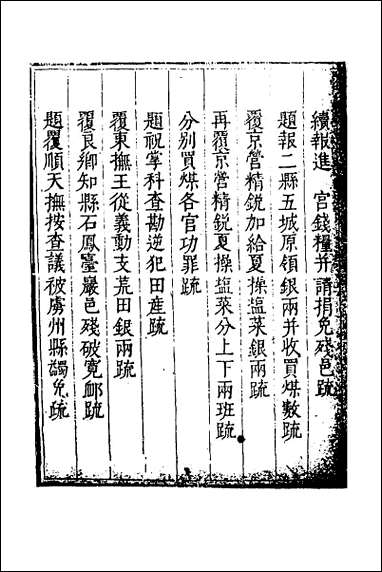 續報進　宮錢糧并請捐免殘邑疏
題報二縣五城原領銀兩并收買煤數疏
覆京營精銳加給夏操塩菜銀兩疏
再覆京營精銳夏操塩菜分上下兩班疏
分別買煤各官功罪疏
題祝掌科查勘逆犯田産疏
覆東撫王從義動支荒田銀兩疏
覆良鄉知縣石鳳臺嚴邑殘破寬䘏疏
題覆順天撫按查議被虜州縣蠲免疏